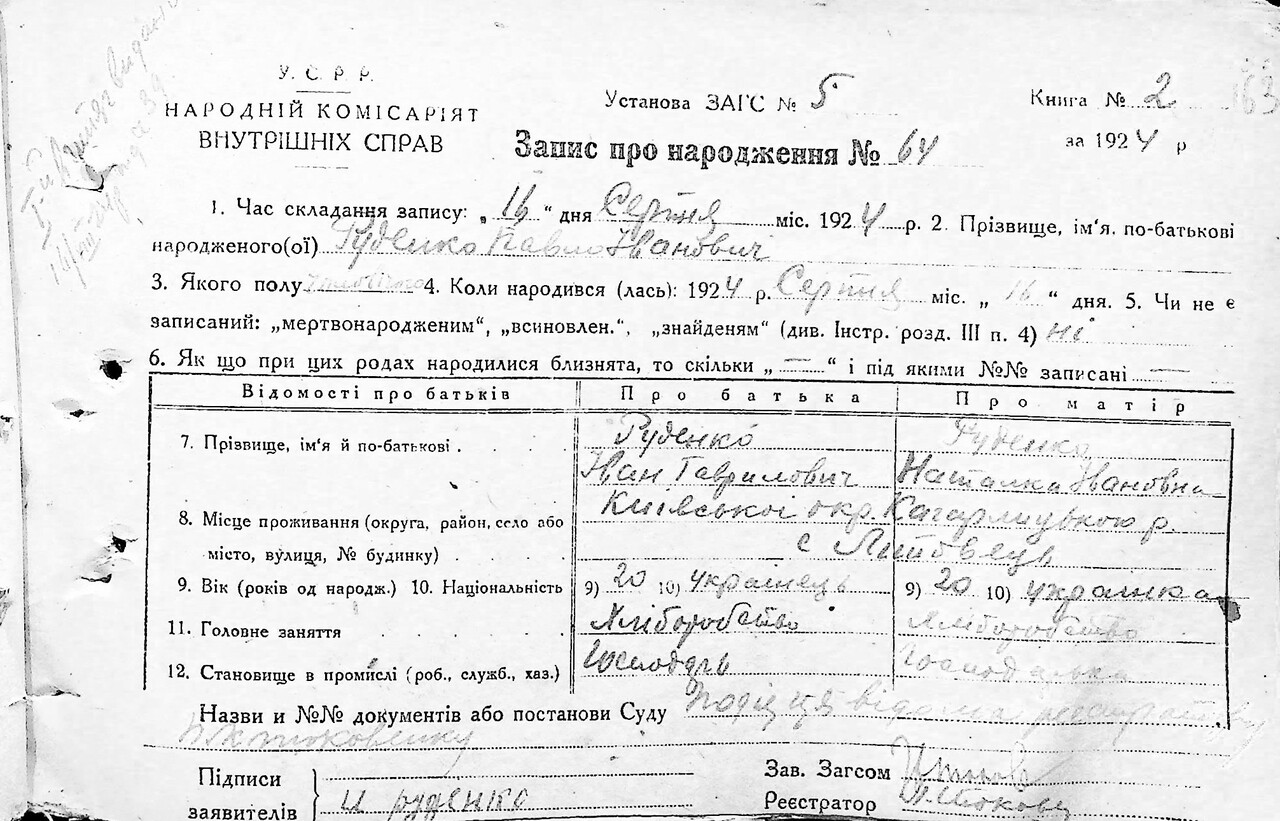 У. С. Р. Р.
НАРОДНІЙ КОМІСАРІЯТ
ВНУТРІШНІХ СПРАВ
Установа ЗАГС № 5
Книга № 2
63
за 1924 р
Запис про народження № 64
1. Час складання запису: „ 16 “ дня Серпня міс. 1924 р. 2. Прізвище, ім'я. по-батькові
народженого(ої) Руденко Павло Іванович
3. Якого полу 4. Коли народився (лась): 1924 р. Серпня міс. „ 16 “ дня. 5. Чи не є
записаний: „мертвонародженим“, „всиновлен.“, „знайденям“ (див. Інстр. розд. III п. 4) ні
6. Як що при цих родах народилися близнята, то скільки „ — “ і під якими №№ записані —
Відомості про батьків Про батька Про матір
7. Прізвище, ім'я й по-батькові . Руденко Руденко
Іван Гаврилович Наталка Івановна
8. Місце проживання (округа, район, село або Київської окр. Кагарлицького р.
місто, вулиця, № будинку) с
9. Вік (років од народж.) 10. Національність 9) 20 10) українець 9) 20 10) українка
11. Головне заняття Хліборобство Хліборобство
12. Становище в промислі (роб., служб., хаз.) Господарь Господарька
Назви и №№ документів або постанови Суду
Підписи
заявителів И Руденко
Зав. Загсом
Реєстратор